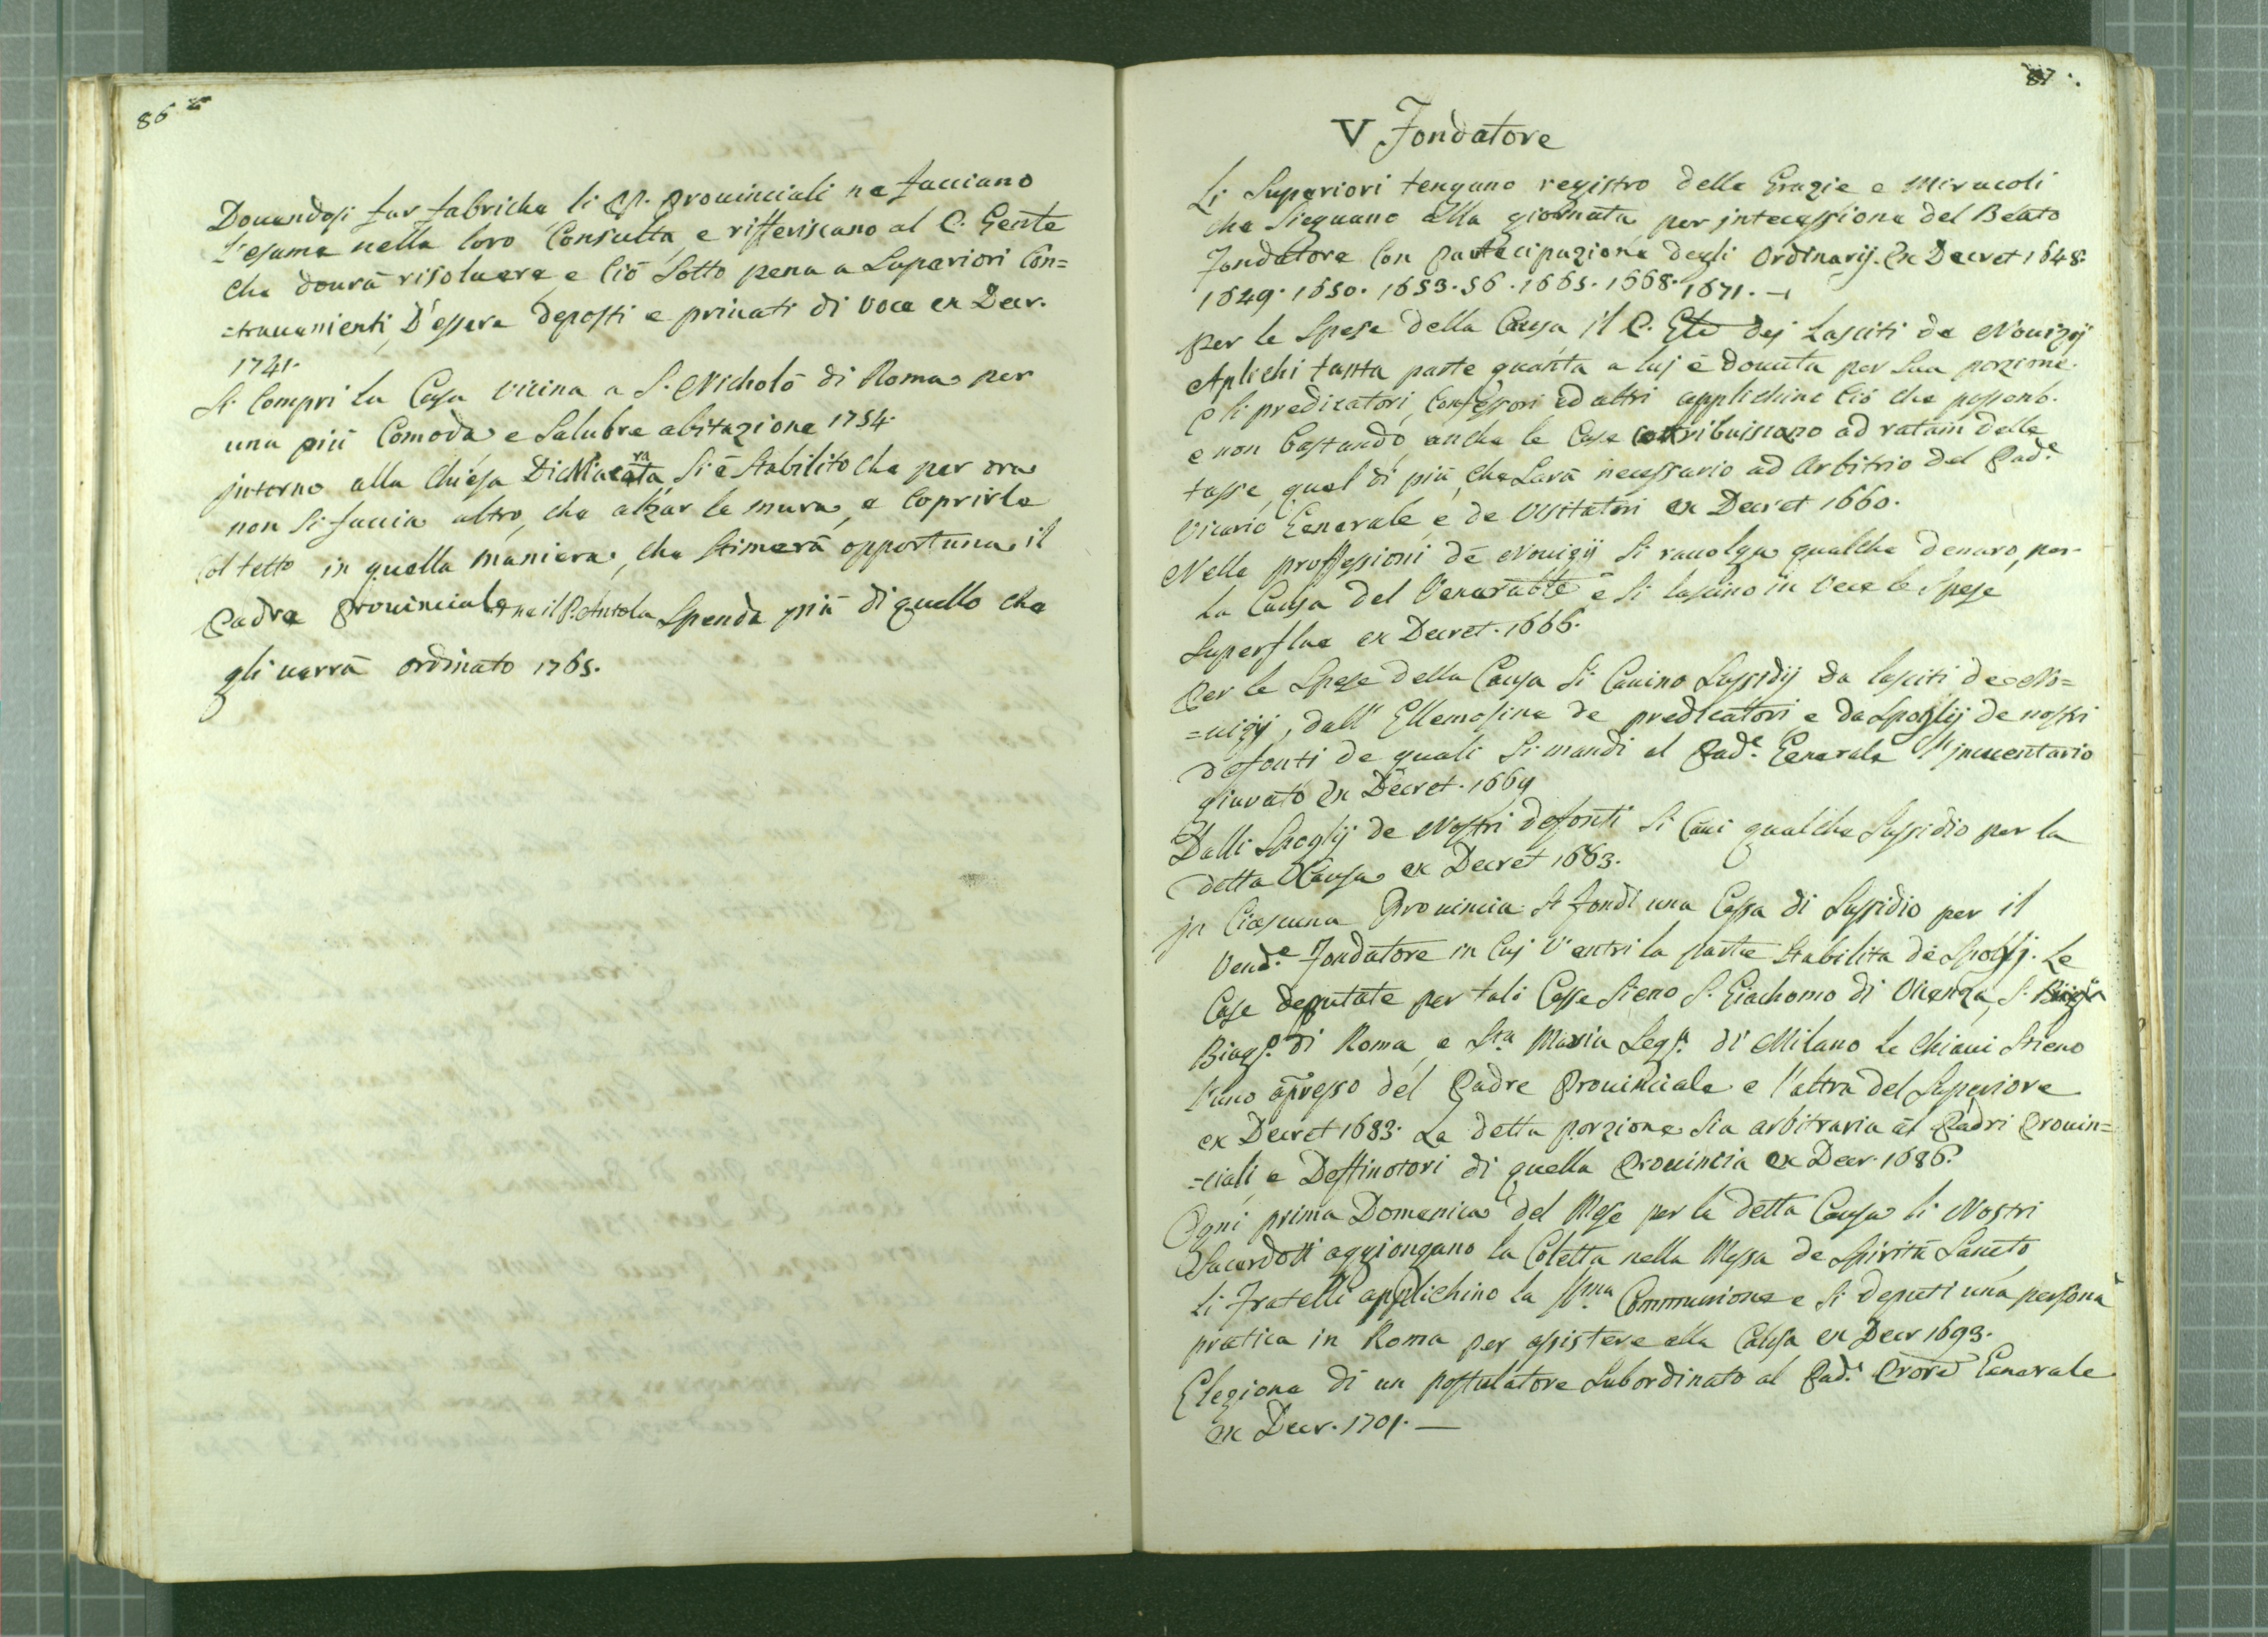 86
Douendosi far fabriche li PP. Prouinciali ne facciano
l'esame nella loro Consulta e rifferiscano al P. Gen̄le
che dourà risoluere e Ciò Sotto pena a Superiori Con=
=trauenienti, D'essere deposti e priuati di Voce ex Decr.
1741.
Si Compri la Casa Vicina a S. Nicholò di Roma per
una più Comoda e Salubre abitazione 1754.
jntorno alla Chiesa Di Macerata Si è Stabilito che per ora
non Si faccia altro, che alzar le mura, e Coprirle
Col tetto in quella maniera, che Stimerà opportuna il
Padre Prouinciale ne il P. Antola Spenda più di quello che
gli uerrà ordinato 1765.
87.
V Fondatore
Li Superiori tengano registro delle Grazie e Miracoli
che Sieguano alla giornata per jntecessione del Beato
Fondatore Con Partecipazione degli Ordinarij. Ex Decret 1648.
1649. 1650. 1653. 56. 1665. 1668. 1671.
Per le Spese della Causa il P. Gle dej Lasciti de Nouizij
Aplichi tanta parte quanta a luj è douuta per Sua porzione.
e li predicatori, Confessori ed altri applichino Ciò che possono.
e non bastando, anche le Case Contribuiscano ad ratam delle
tasse, quel di più, che Sarà necessario ad Arbitrio del Pad.e
Vicario Generale, e de Visitatori ex Decret 1660.
Nelle proffessioni de Nouizij Si raccolga qualche denaro, per
La Causa del Venerabile e Si lascino in Vece le Spese
Superflue ex Decret. 1666.
Per le Spese della Causa Si Cauino Sussidij da lasciti de No=
=uizij, dall' Ellemosine de predicatori e da Spoglij de nostri
defonti de quali Si mandi al Pad.e Generale l'jnuentario
giurato Ex Decret. 1669
Dalli Spoglij de Nostri defonti Si Caui qualche Sussidio per la
detta Causa ex Decret 1683.
jn Ciascuna Prouincia Si fondi una Cassa di Sussidio per il
Vend.e Fondatore in Cuj V'entri la parte Stabilita de Spoglj. Le
Case deputate per tali Casse Sieno S. Giachomo di Vicenza, S.
Biag.o di Roma, e Sta Maria Seg.a di Milano Le Chiaui Stieno
l'uno apresso del Padre Prouinciale e l'altra del Superiore
ex Decret 1683. La detta porzione Sia arbitraria āl Padri Prouin=
=ciali e Deffinotori di quella Prouincia Ex Decr. 1686.
Ogni prima Domenica del Mese per la detta Causa li Nostri
Sacerdoti aggiongano la Coletta nella Messa de Spiritù Sancto,
Li Fratelli applichino la SSma Communione e Si deputi una persona
pratica in Roma per assistere alla Causa ex Decr 1693.
Elezione di un postulatore Subordinato al Pad.e Prore Generale
ex Decr. 1701. —